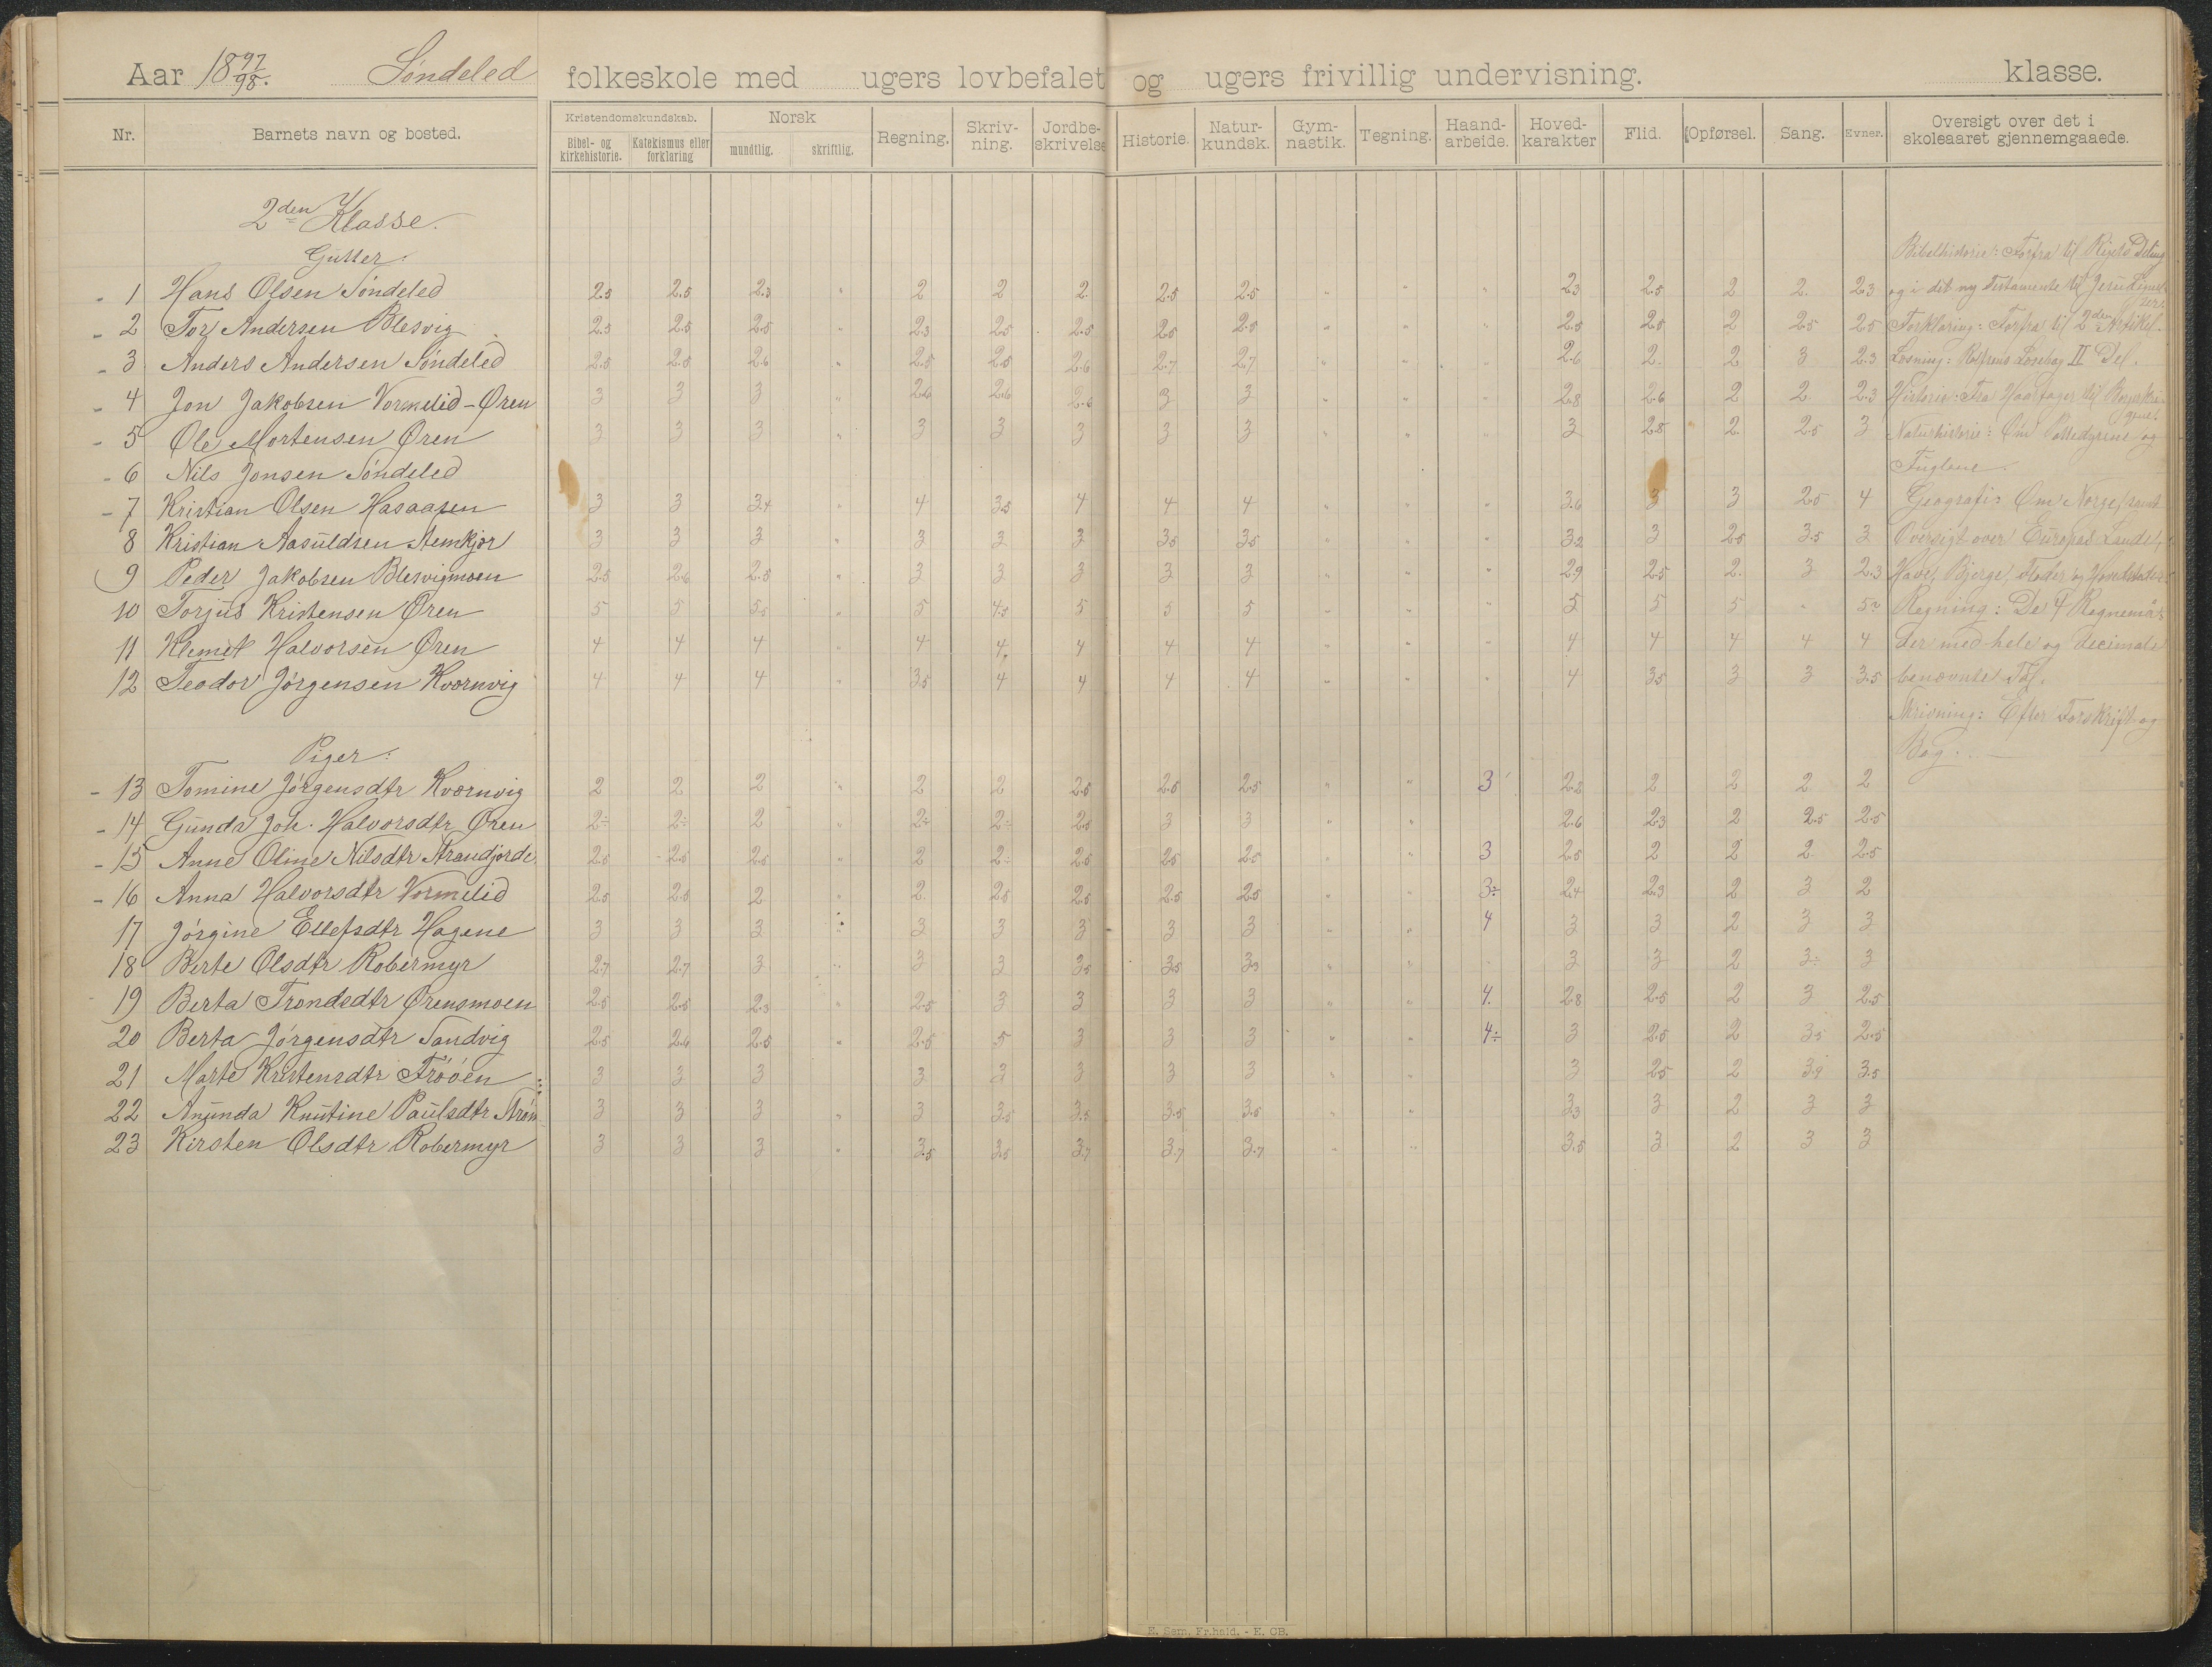 Aar 18 97/98. Søndeled folkeskole med ugers lovbefalet og ugers frivillig undervisning. klasse.
Nr. Barnets navn og bosted. Kristendomskundskab. Bibel- og kirkehistorie. Katekismus eller forklaring Norsk mundtlig. skriftlig. Regning. Skriv-ning. Jordbe-skrivelse Historie. Natur-kundsk. Gym-nastik. Tegning. Haand-arbeide. Hoved-karakter Flid. Opførsel. Sang. Evner. Oversigt over det i skoleaaret gjennemgaaede.
2den Klasse.
Gutter:
1 Hans Olsen Søndeled 2.5 2.5 2.3 " 2 2 2. 2.5 2.5 " " " 2.3 2.5 2 2. 2.3
2 Tor Andersen Blesvig 2.5 2.5 2.5 " 2.3 2.5 2.5 2.5 2.5 " " " 2.5 2.5 2 2.5 2.5
3 Anders Andersen Søndeled 2.5 2.5 2.6 " 2.5 2.5 2.6 2.7 2.7 " " " 2.6 2. 2 3 2.3
4 Jon Jakobsen Vormelid-Øren 3 3 3 " 2.6 2.6 2.6 3 3 " " " 2.8 2.6 2 2. 2.3
5 Ole Mortensen Øren 3 3 3 " 3 3 3 3 3 " " " 3 2.8 2. 2.5 3
6 Nils Jonsen Søndeled
7 Kristian Olsen Hasaasen 3 3 3.4 " 4 3.5 4 4 4 " " " 3.6 3 3 2.5 4
8 Kristian Aasuldsen Stemkjør 3 3 3 " 3 3 3 3.5 3.5 " " " 3.2 3 2.5 3.5 3
9 Peder Jakobsen Blesvigmoen 2.5 2.6 2.5 " 3 3 3 3 3 " " " 2.9 2.5 2. 3 2.3
10 Torjus Kristensen Øren 5 5 5.5 " 5 4.5 5 5 5 " " " 5 5 5 " 5
11 Klemet Halvorsen Øren 4 4 4 " 4 4. 4 4 4 " " " 4 4 4 4 4
12 Teodor Jørgensen Kvørnvig 4 4 4 " 3.5 4 4 4 4 " " " 4 3.5 3 3 3.5
Piger:
13 Tomine Jørgensdtr Kvørnvig 2 2 2 " 2 2 2.5 2.5 2.5 " " 3 2.2 2 2 2 2
14 Gunda Joh. Halvorsdtr Øren 2÷ 2÷ 2 " 2÷ 2÷ 2.5 3 3 " " 2.6 2.3 2 2.5 2.5
15 Anne Oline Nilsdtr Strandjorde. 2.5 2.5 2.5 " 2 2÷ 2.5 2.5 2.5 " " 3 2.5 2 2 2 2.5
16 Anna Halvorsdtr Vormelid 2.5 2.5 2 " 2. 2.5 2.5 2.5 2.5 " " 3÷ 2.4 2.3 2 3 2
17 Jørgine Ellefsdtr Hagene 3 3 3 " 3 3 3 3 3 " " 4 3 3 2 3 3
18 Berte Olsdtr Robermyr 2.7 2.7 3 " 3 3 3.5 3.5 3.3 " " 3 3 2 3÷ 3
19 Berta Trondsdtr Ørensmoen 2.5 2.5 2.3 " 2.5 3 3 3 3 " " 4. 2.8 2.5 2 3 2.5
20 Berta Jørgensdtr Sandvig 2.5 2.6 2.5 " 2.5 5 3 3 3 " " 4÷ 3 2.5 2 3.5 2.5
21 Marte Kristensdtr Frøøen 3 3 3 " 3 3 3 3 3 " " 3 2.5 2 3.9 3.5
22 Anunda Knutine Paulsdtr 3 3 3 " 3 3.5 3.5 3.5 3.5 " " 3.3 3 2 3 3
23 Kirsten Olsdtr Robermyr 3 3 3 " 3.5 3.5 3.7 3.7 3.7 " " 3.5 3 2 3 3
Bibelhistorie: Forfra til Rigets Deling
og i det ny Testamente til Jesu Lignel-
ser.
Forklaring: Forfra til 2den Artikel.
Læsning: Rolfsens Læsebog II Del.
Historie: Fra Haarfager til Borgerkri-
gene.
Naturhistorie: Om Pattedyrene og
Fuglene.
Geografi: Om Norge, samt
Oversigt over Europas Lande,
Have, Bjerge, Floder og Hovedstæder.
Regning: De 4 Regnemaa-
der med hele og decimale
benævnte Tal.
Skrivning: Efter Forskrift og
Bog.
E. Sem, Fr.hald. - E. CB.